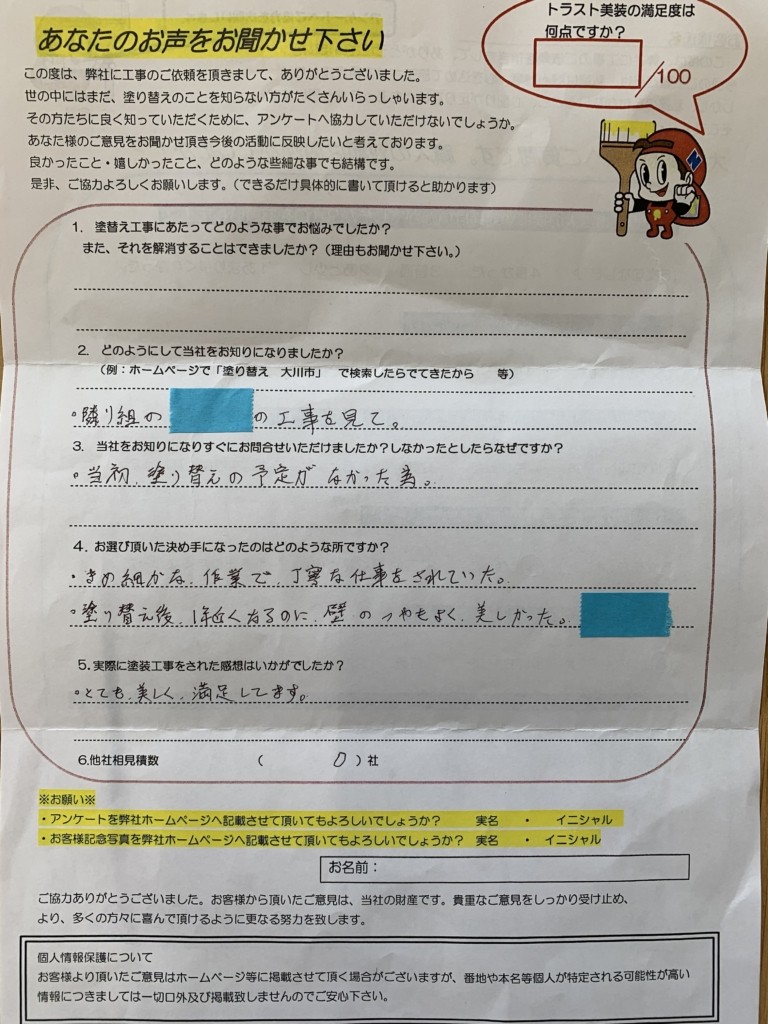 あなたのお声をお聞かせ下さい
トラスト美装の満足度は
何点ですか?
/100
この度は、弊社に工事のご依頼を頂きまして、ありがとうございました。
世の中にはまだ、塗り替えのことを知らない方がたくさんいらっしゃいます。
その方たちに良く知っていただくために、アンケートへ協力していただけないでしょうか。
あなた様のご意見をお聞かせ頂き今後の活動に反映したいと考えております。
良かったこと・嬉しかったこと、どのような些細な事でも結構です。
是非、ご協力よろしくお願いします。(できるだけ具体的に書いて頂けると助かります)
1. 塗替え工事にあたってどのような事でお悩みでしたか?
また、それを解消することはできましたか?(理由もお聞かせ下さい。)
2. どのようにして当社をお知りになりましたか?
(例:ホームページで「塗り替え 大川市」 で検索したらでてきたから 等)
・隣り組の の工事を見て。
3. 当社をお知りになりすぐにお問合せいただけましたか?しなかったとしたらなぜですか?
・当初、塗り替えの予定がなかった為。
4. お選び頂いた決め手になったのはどのような所ですか?
・きめ細かな、作業で、丁寧な仕事をされていた。
・塗り替え後、1年近くなるのに、壁のつやもよく、美しかった。
5.実際に塗装工事をされた感想はいかがでしたか?
・とても、美しく、満足してます。
6.他社相見積数 ( 0 )社
※お願い※
・アンケートを弊社ホームページへ記載させて頂いてもよろしいでしょうか? 実名 ・ イニシャル
・お客様記念写真を弊社ホームページへ記載させて頂いてもよろしいでしょうか? 実名 ・ イニシャル
お名前:
ご協力ありがとうございました。お客様から頂いたご意見は、当社の財産です。貴重なご意見をしっかり受け止め、
より、多くの方々に喜んで頂けるように更なる努力を致します。
個人情報保護について
お客様より頂いたご意見はホームページ等に掲載させて頂く場合がございますが、番地や本名等個人が特定される可能性が高い
情報につきましては一切口外及び掲載致しませんのでご安心下さい。